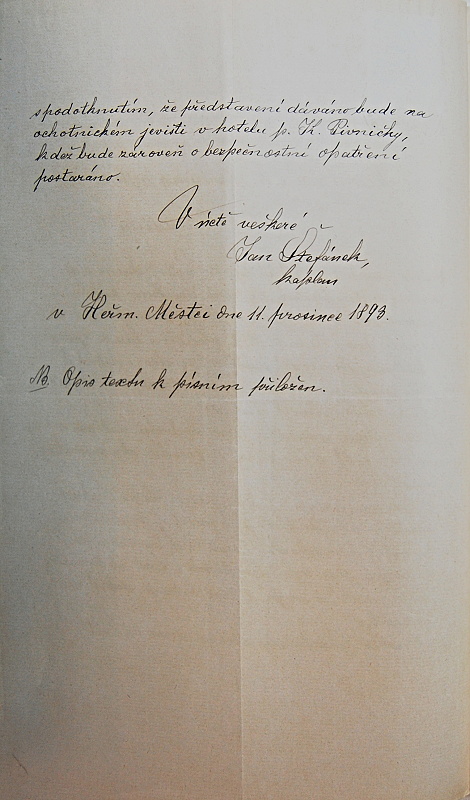 s podotknutím, že představení dáváno bude na
ochotnickém jevišti v hotelu p. K. Pivničky,
kdež bude zároveň o bezpečnostní opatření
postaráno.
V úctě veškeré
Jan Štefánek,
kaplan
v Heřm. Městci dne 11. prosince 1893.
NB. Opis textu k písním přiložen.